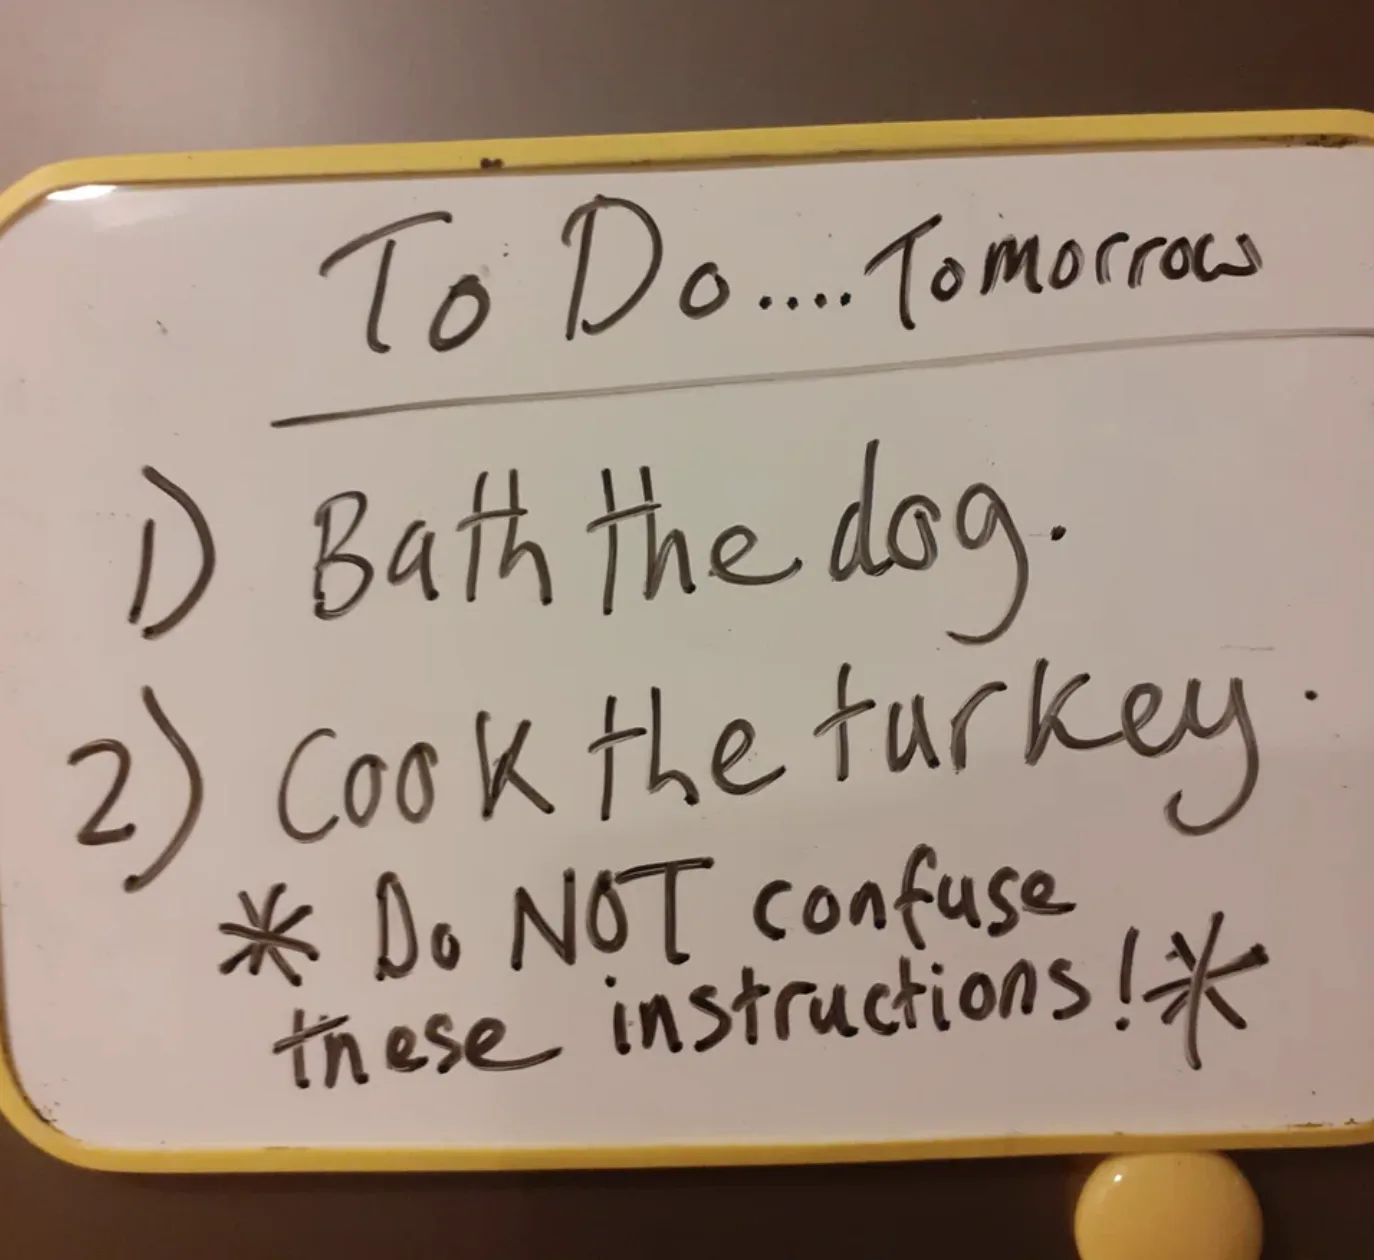 To Do.... Tomorrow
1) Bath the dog.
2) Cook the turkey.
* Do NOT confuse
these instructions! *